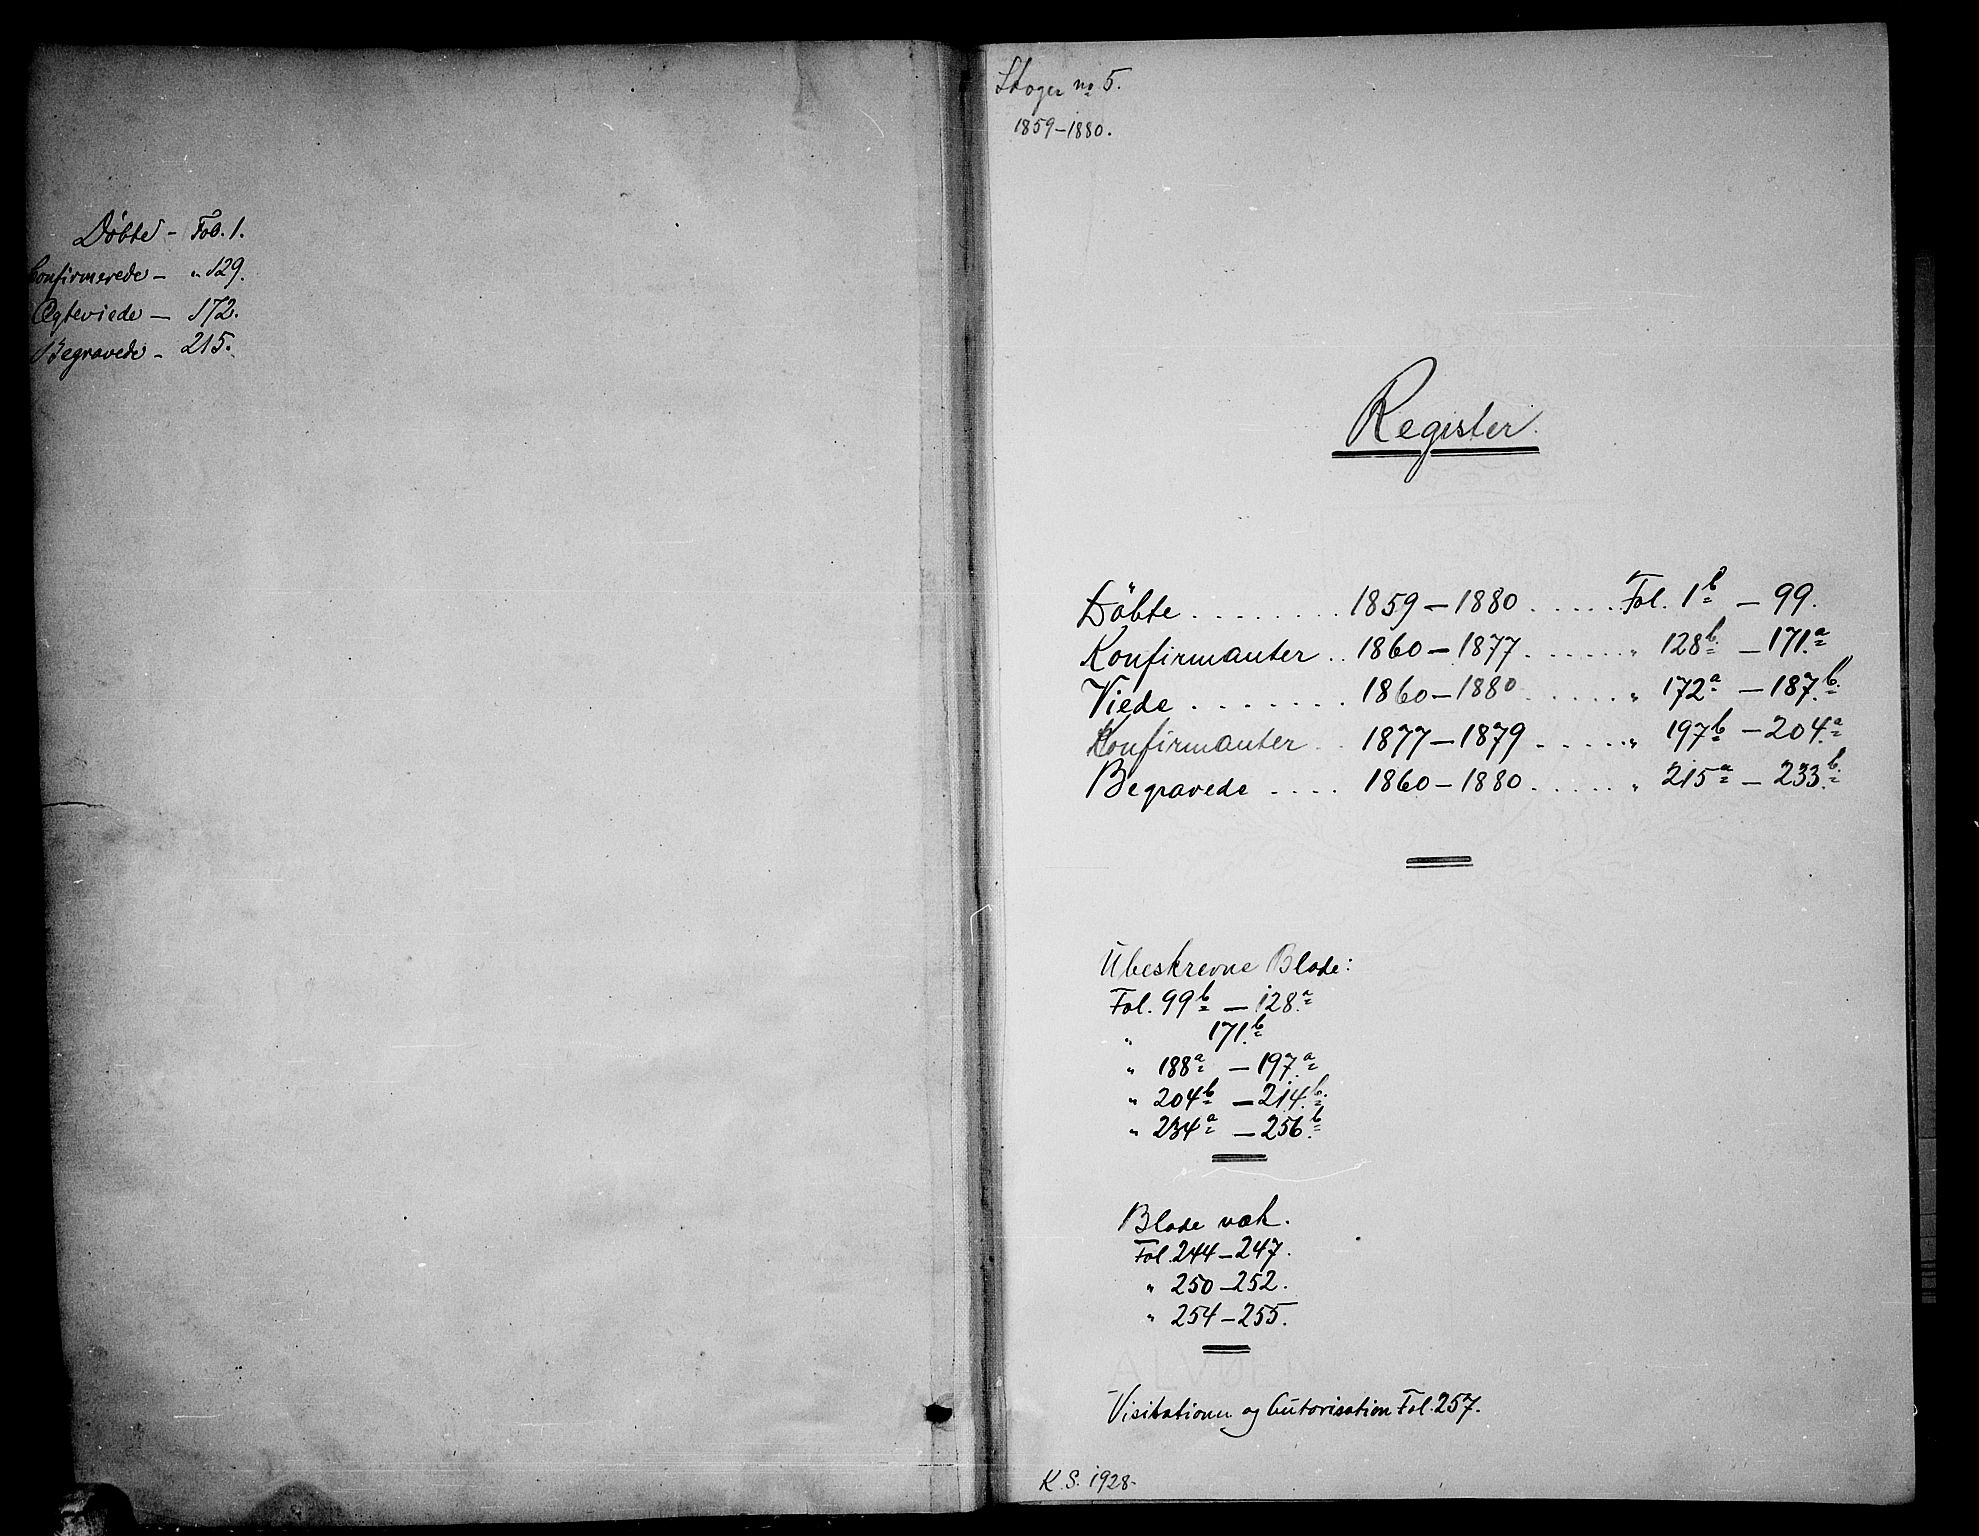 Döbte - Fol. 1.
Confirmerede - „ 129.
Ægteviede - 172.
Begravede - 215.
Skoger no 5.
1859-1880.
Register.
Döbte ........ 1859-1880 ..... Fol. 1b - 99.
Konfirmanter .. 1860-1877 ...... „ 128b - 171a
Viede ....... 1860-1880 ...... „ 172a - 187b.
Konfirmanter .. 1877-1879 ..... „ 197b - 204a
Begravede .... 1860-1880 ..... „ 215a - 233b.
Ubeskrevne Blade:
Fol. 99b - 128a
„ 171b
„ 188a - 197a
„ 204b - 214b.
„ 234a - 256b
Blade væk.
Fol. 244-247.
„ 250-252.
„ 254-255.
ALVØEN
Visitationer og Autorisation Fol. 257.
K. S. 1928.